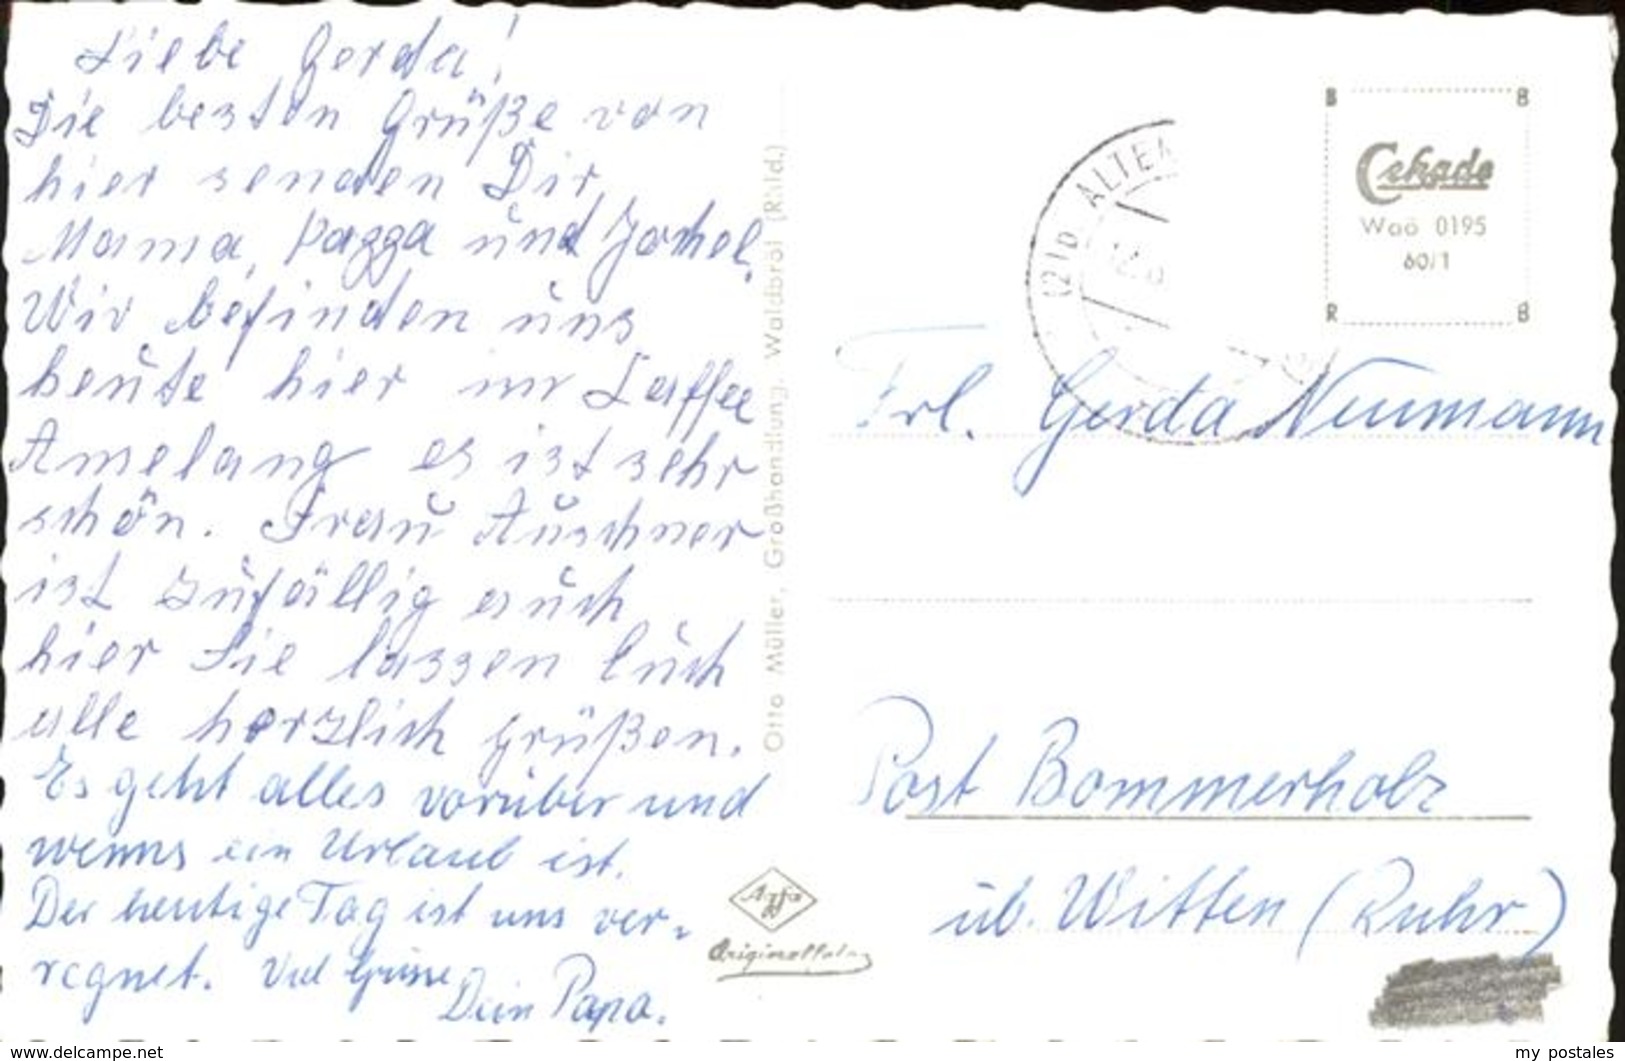 Liebe Gerda!
Die besten Grüße von
hier senden Dir
Mama, Pappa und
Wir befinden uns
heute hier im Kaffee
Amelang es ist sehr
schön. Frau
ist zufällig auch
hier Sie lassen Euch
alle herzlich grüßen.
Es geht alles vorüber und
wenns ein Urlaub ist.
Der heutige Tag ist uns ver-
regnet. Viel Grüsse
Dein Papa.
Otto Müller, Großhandlung, Waldbröl (Rhld.)
Agfa
Originalfoto
(21b) ALTEN
B B
Cekade
Waö 0195
60/1
R B
Frl. Gerda Neumann
Post Bommerholz
üb. Witten (Ruhr)
www.delcampe.net
my_postales